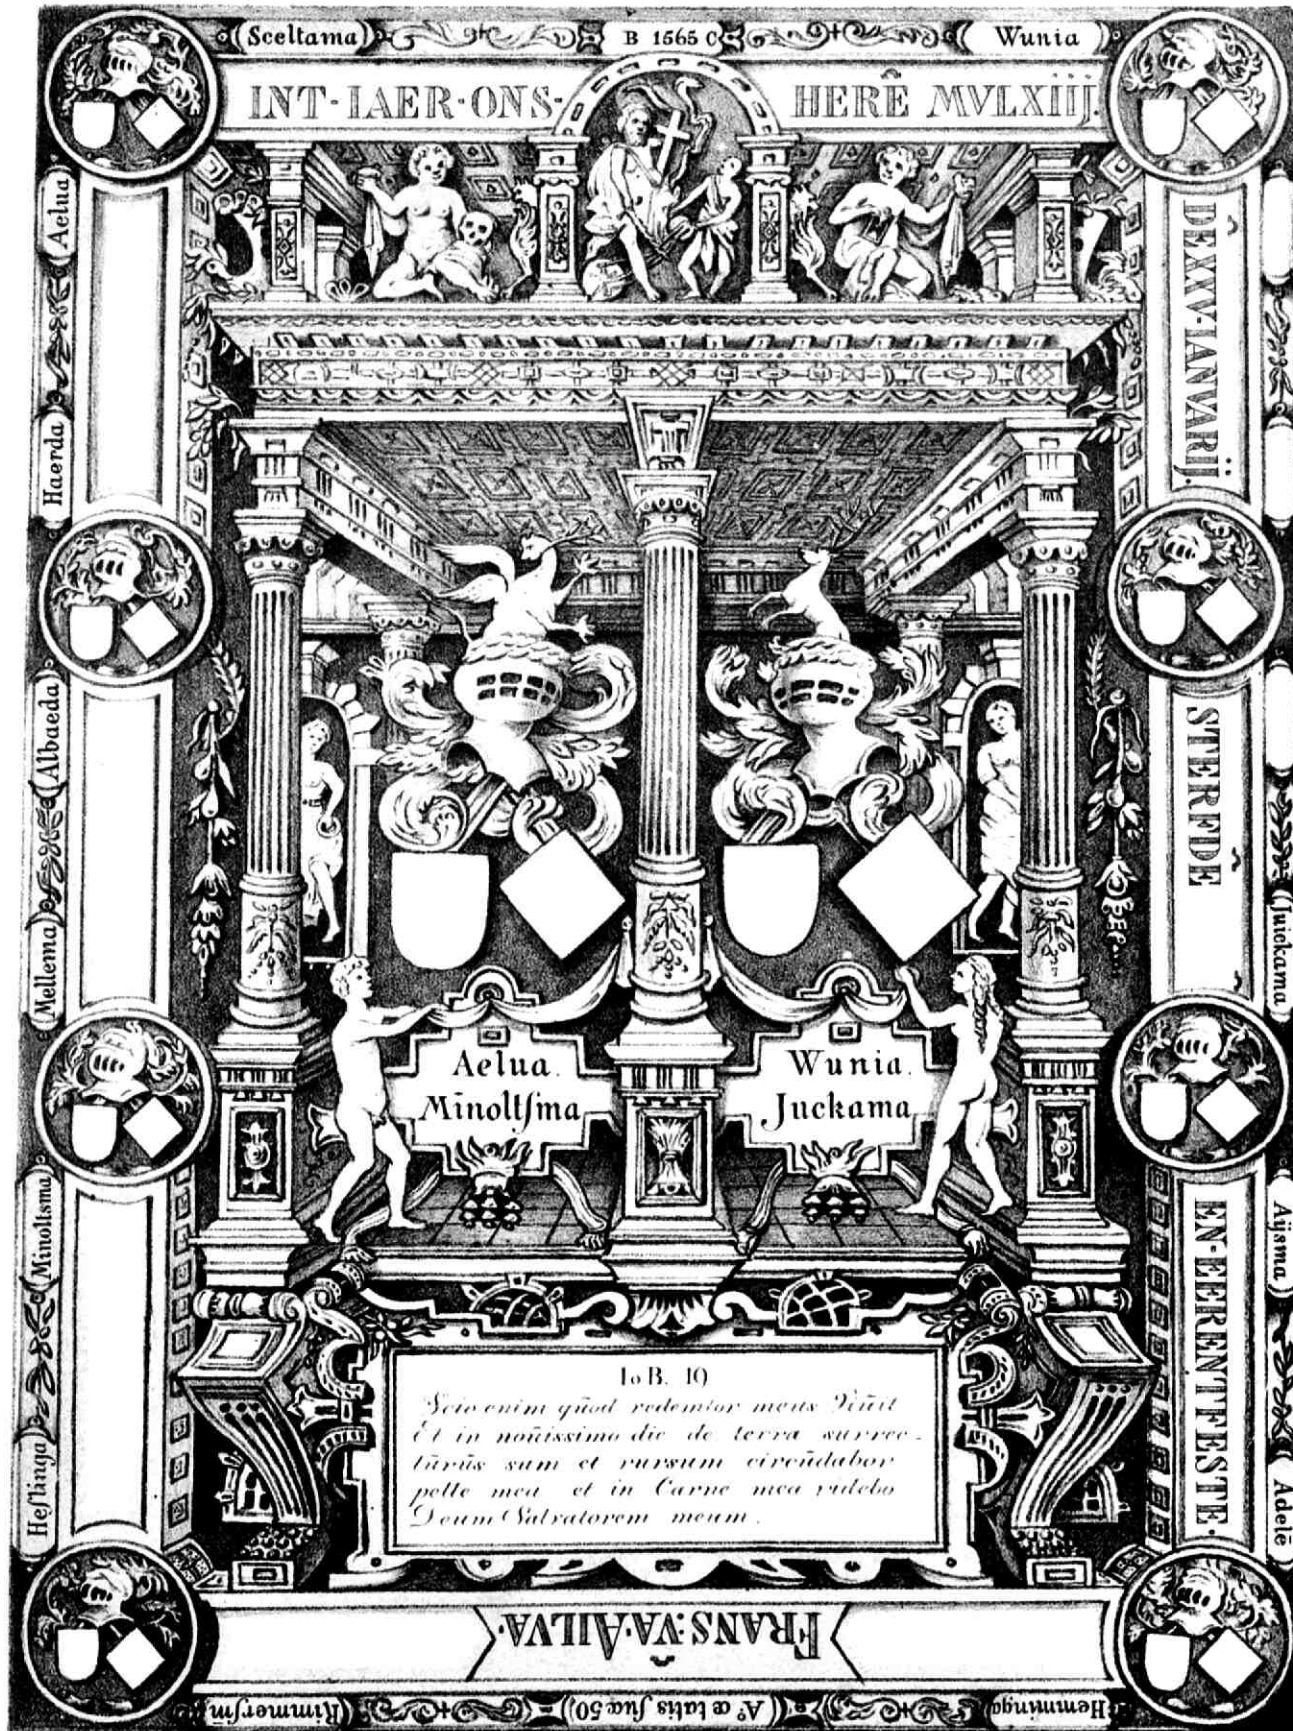 Sceltama
B 1565 C
Wunia
INT·IAER·ONS·
HERÊ MVLXIIIJ.
DĒ·XXV·IANVARIJ.
STERFDĒ
EN·EERENTFESTE·
FRANS·VĀ·AILVA·
Aelua
Haerda
Albaeda
Mellema
Minoltsma
Heſlinga
Juickama
Aijsma
Adelē
Aelua.
Mīnoltſma
Wunia.
Juckama
IoB. 19
Scio enim qūod redemtor meus Viūit
Et in noūissimo die de terra surrec-
tūrūs sum et rursum circūdabor
pelle mea et in Carne mea videbo
Deum Salvatorem meum.
Hemminga
Aº ætatis ſuæ 50,
Rimmerſm̄